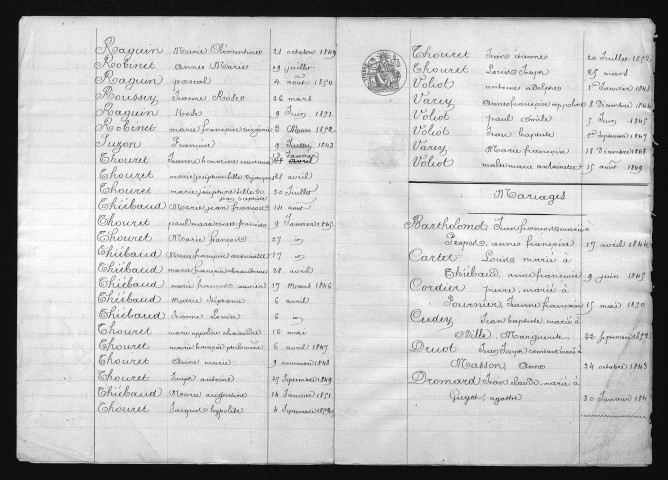 Raguin Marie Clémentine 21 octobre 1849
Robinet Anne Marie 19 juillet
Raguin pascal 4 août 1850
Roussey Jeanne Rose 26 mars
Raguin Rose 9 Juin 1851
Robinet marie françoise virginie 2 Mars 1852
Suzon François 9 Juillet 1843
Thouret Jeanne honorine constance 12 Janvier
Thouret marie joséphine fille de jacques 28 avril
Thouret marie joséphine fille de jean baptiste 30 Juillet
Thiébaud Marie jean françois 14 août
Thouret paul marie 9 Janvier 1845
Thouret Marie francois 27 id
Thiébaud Marie françoise antoinette 17 id
Thiébaud marie françois 28 avril
Thiébaud marie francois xavier 17 Mars 1846
Thiébaud Marie Stéphanie 6 avril
Thiébaud Jeanne Louise 6 id
Thouret marie appoline alexandrine 16 mai
Thouret marie françoise philomène 6 avril 1847
Thouret marie 9 novembre 1848
Thouret Joseph antoine 27 Septembre 1849
Thiébaud Marie augustin 14 Janvier 1851
Thouret Jacques hypolite 4 Septembre 1852
Thouret Jean étienne 20 Juillet 1852
Thouret Louis Joseph 25 mars
Voliot antoine adolphe 1er Janvier 1843
Varey anne françoise appoline 8 Décembre 1844
Voliot paul émile 5 Juin 1845
Voliot Jean baptiste 1er Septembre 1847
Varey Marie françoise 18 Décembre 1848
Voliot marie antoinette 15 août 1849
Mariages
Bartholomot Jean françois marié à
anne françoise 17 avril 1844
Cartet Louis marié à
Thiébaud, anne françoise 9 juin 1845
Cordier pierre, marié à
Fournier, Jeanne françoise 15 mai 1850
Cudey Jean baptiste, marié à
Ville, Marguerite 22 Septembre 1852
Druot Jean Joseph constant marié à
Masson, Anne 24 octobre 1843
Dromard Jean claude, marié à
Guyot, agathe 30 Janvier 184